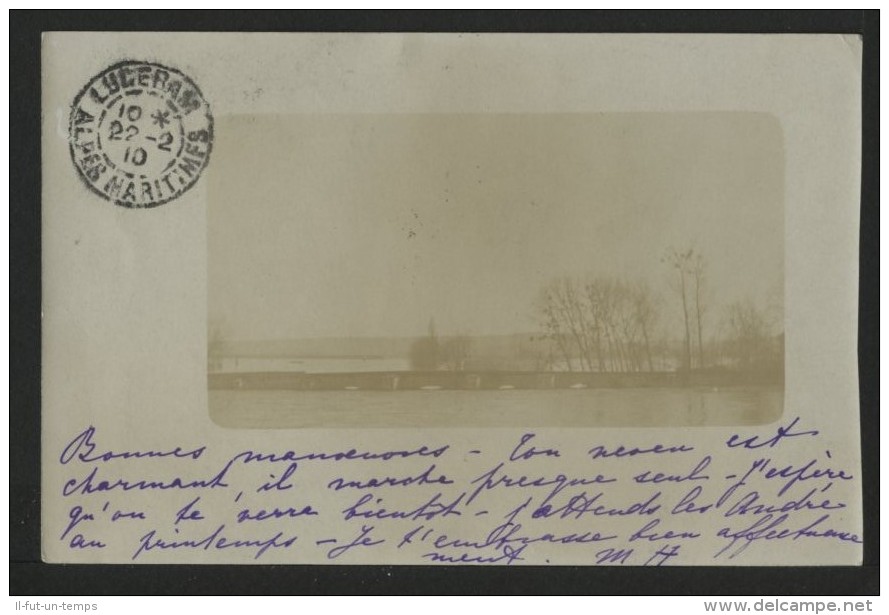 LUCERAM
10 *
22-2
10
ALPES MARITIMES
Bonnes manœuvres - Ton neveu est
charmant, il marche presque seul - J'espère
qu'on te verra bientôt - J'attends les André
au printemps - Je t'embrasse bien affectueuse
ment. M H
Il-fut-un-temps
www.delcampe.net